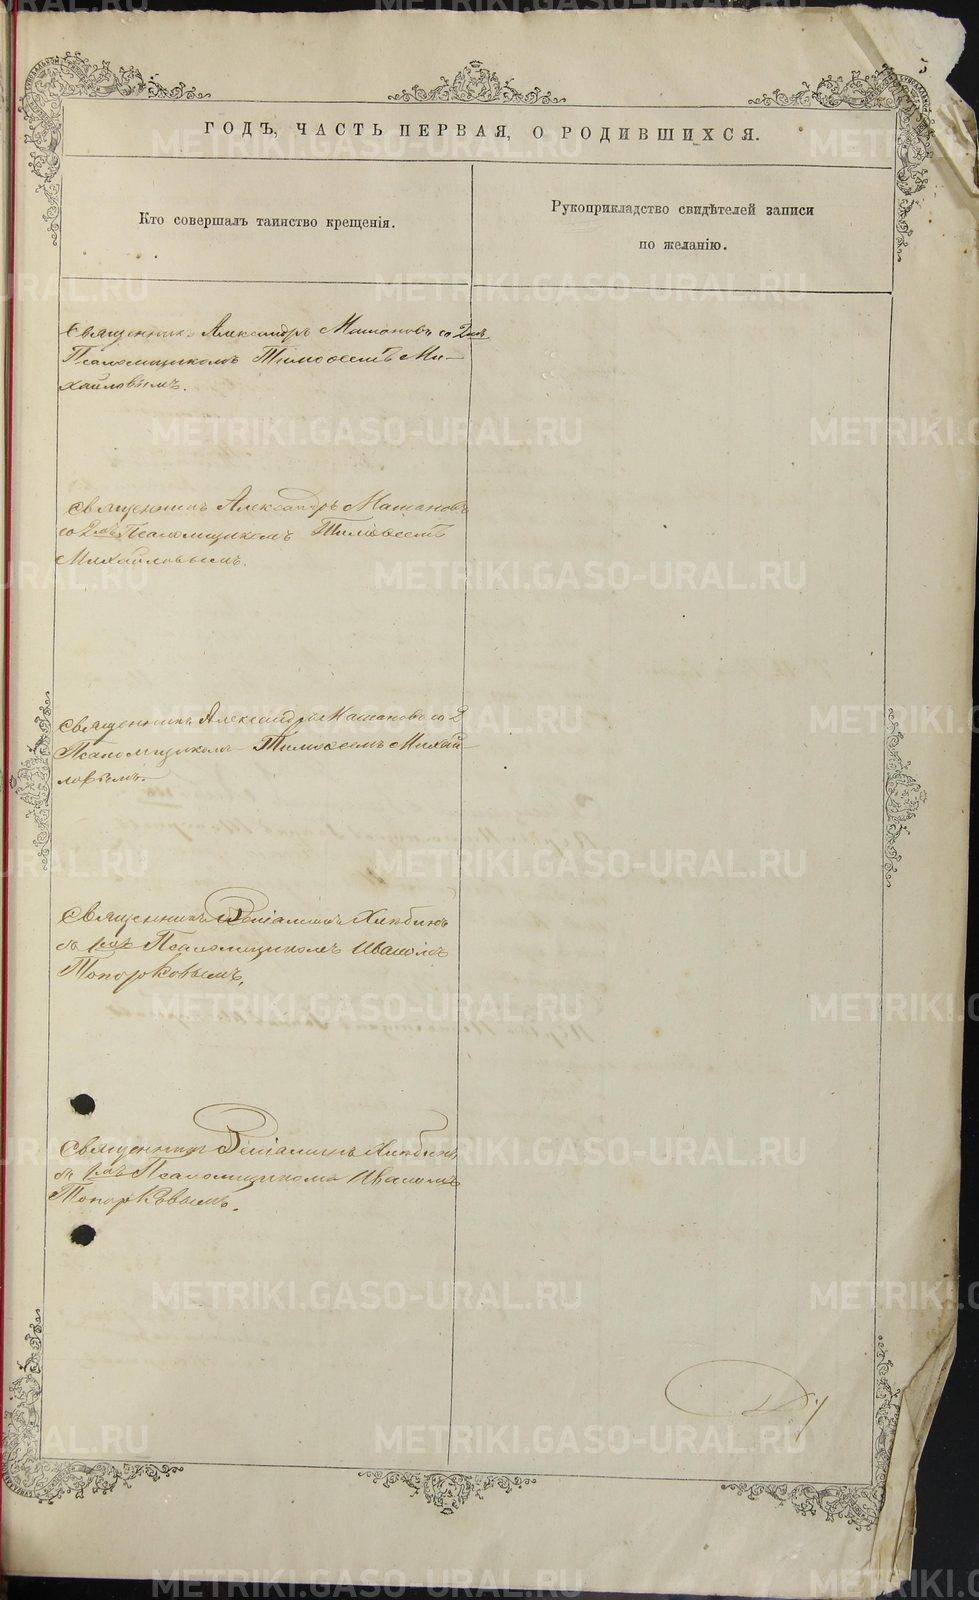 5
ГОДЪ, ЧАСТЬ ПЕРВАЯ, О РОДИВШИХСЯ.
Кто совершалъ таинство крещенія.
Рукоприкладство свидѣтелей записи
по желанію.
Священникъ Александръ Машановъ со 2мъ
Псаломщикомъ Тимоѳеемъ Ми-
хайловымъ.
Священникъ Александръ Машановъ
со 2мъ Псаломщикомъ Тимоѳеемъ
Михайловымъ.
Священникъ Александръ Машановъ со 2
Псаломщикомъ Тимоѳеемъ Михай-
ловымъ.
Священникъ Веніаминъ Хлѣбинъ
съ 1мъ Псаломщикомъ Иваномъ
Топорковымъ.
Священникъ Веніаминъ Хлѣбинъ
съ 1мъ Псаломщикомъ Иваномъ
Топорковымъ.
METRIKI.GASO-URAL.RU